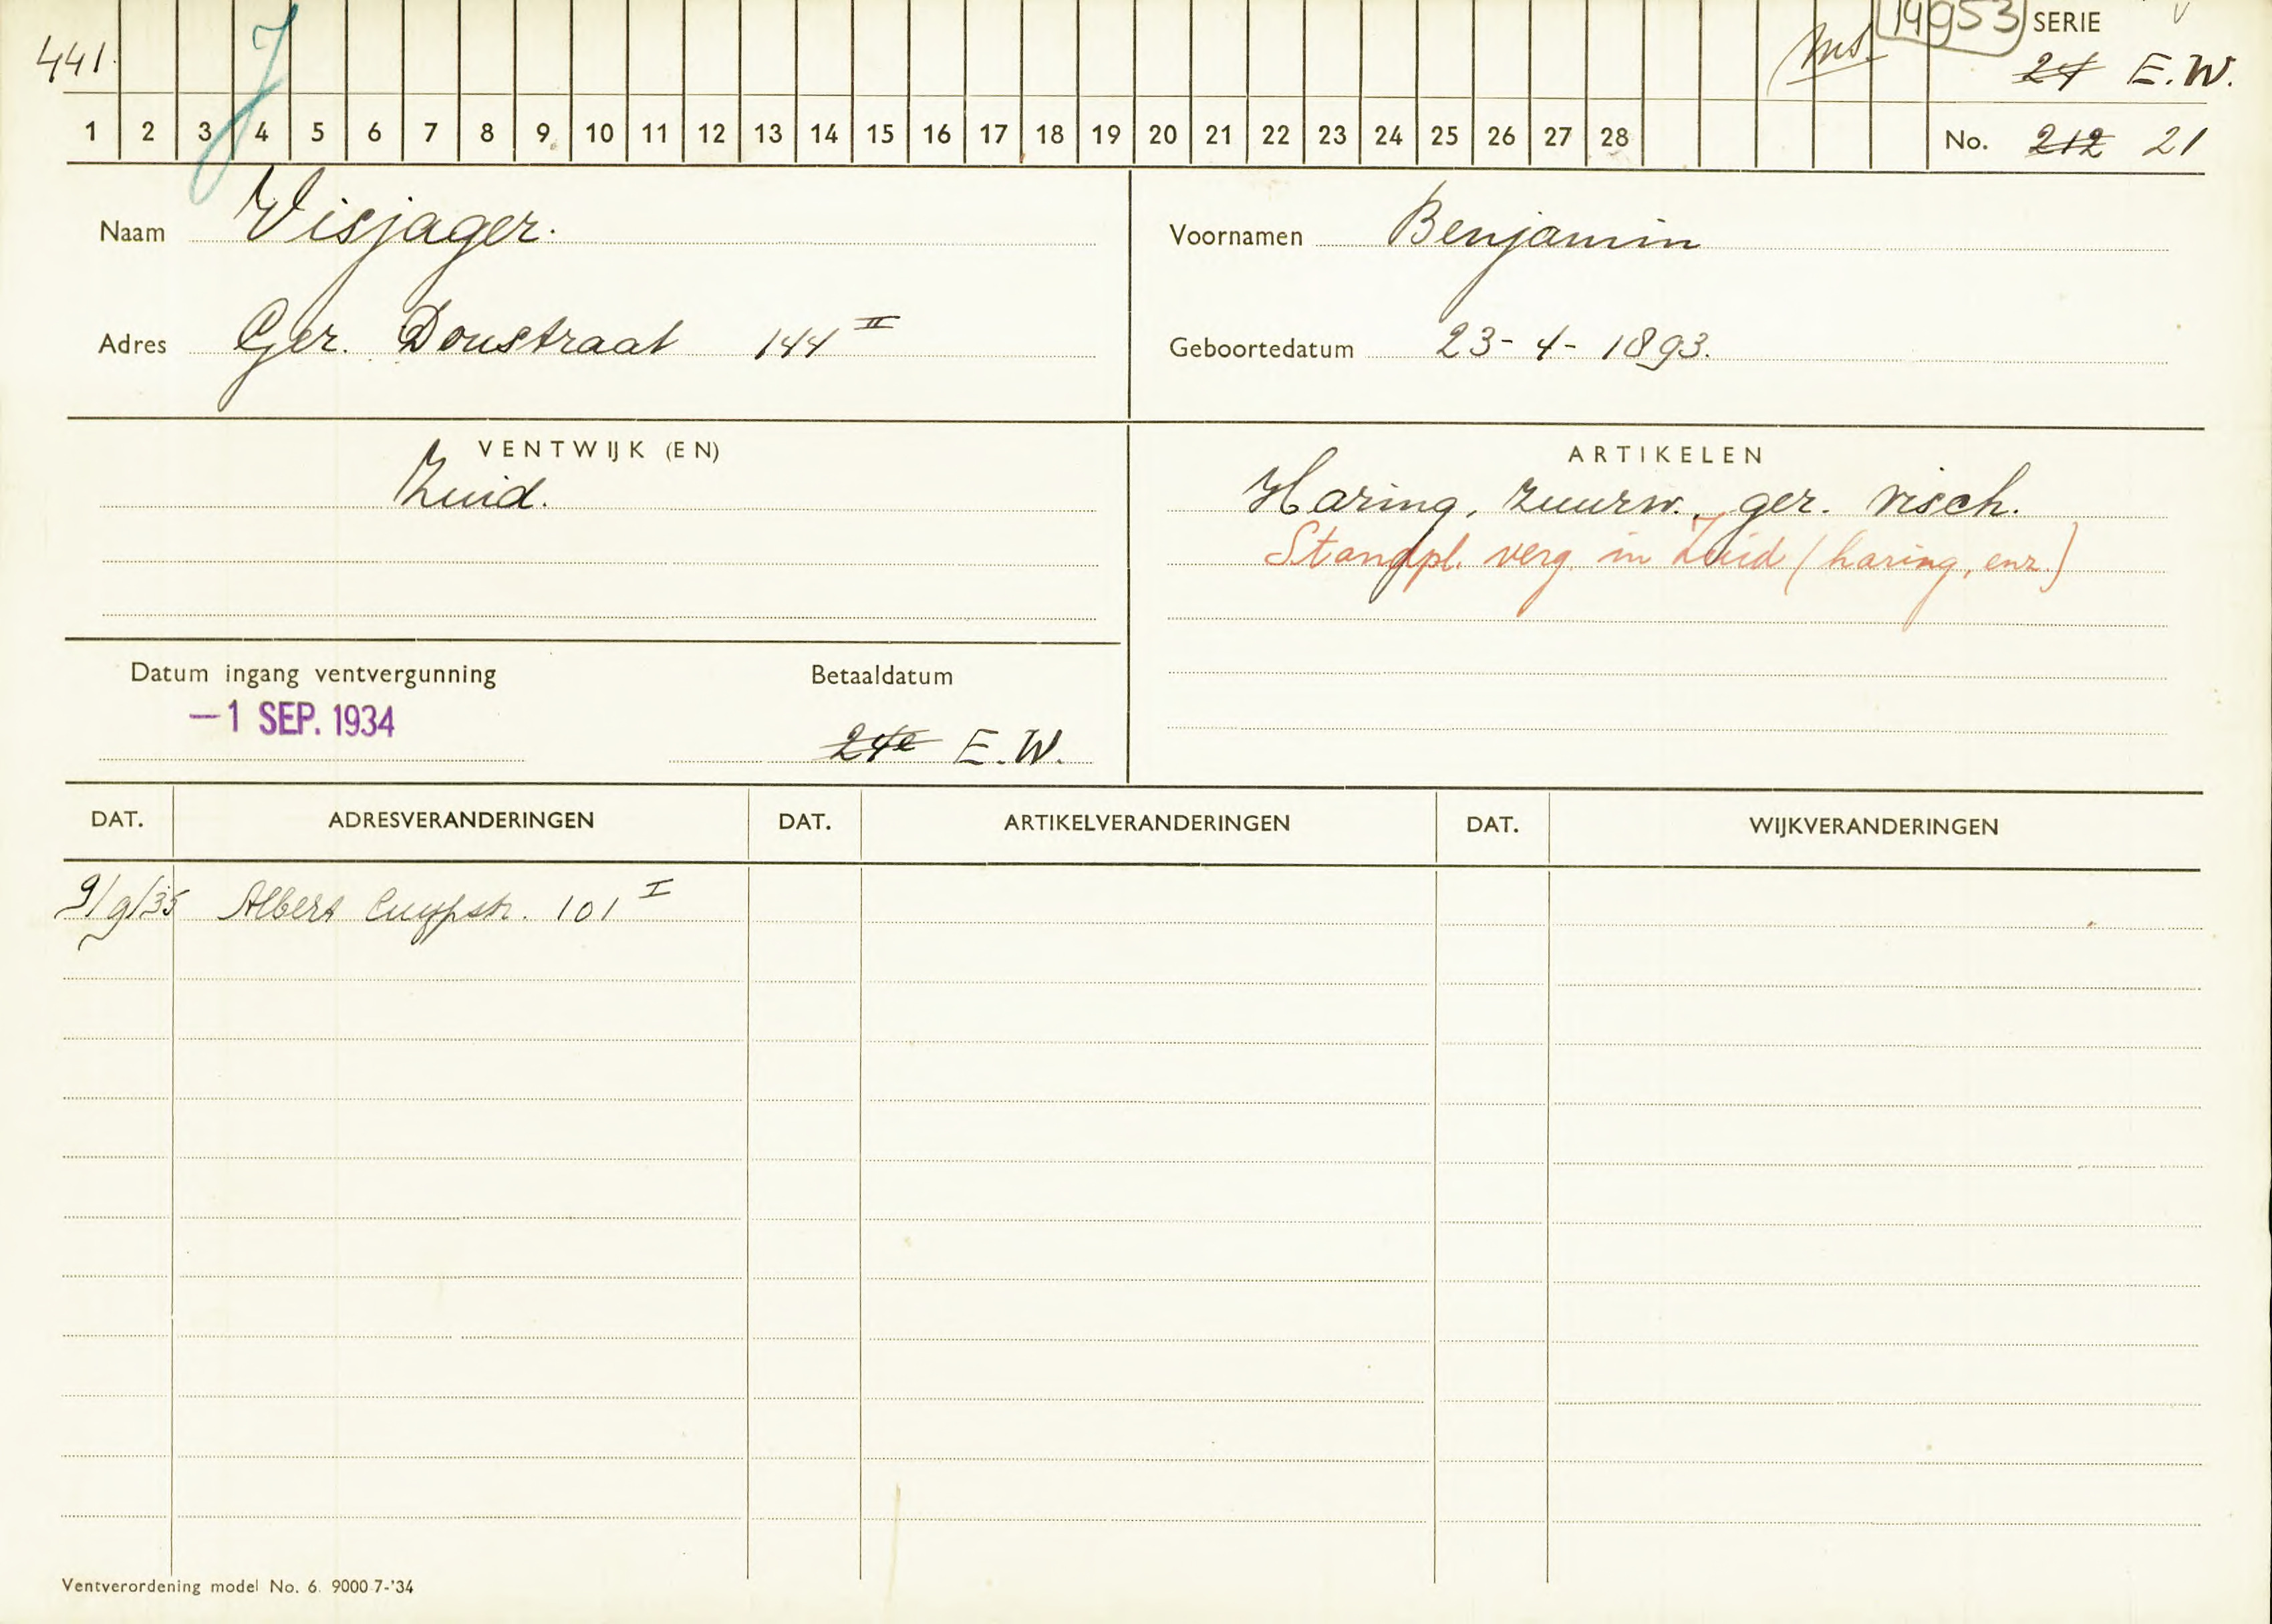 441.
J
14953
SERIE
24 E.W.
1 2 3 4 5 6 7 8 9 10 11 12 13 14 15 16 17 18 19 20 21 22 23 24 25 26 27 28
No. 212 21
Naam Visjager.
Voornamen Benjamin
Adres Ger. Doustraat 144 II
Geboortedatum 23-4-1893.
VENTWIJK (EN)
Zuid.
ARTIKELEN
Haring, zuurw., ger. visch.
Standpl. verg. in Zuid (haring, enz.)
Datum ingang ventvergunning
Betaaldatum
-1 SEP. 1934
24e E.W.
DAT. ADRESVERANDERINGEN DAT. ARTIKELVERANDERINGEN DAT. WIJKVERANDERINGEN
9/9/35 Albert Cuypstr. 101 I
Ventverordening model No. 6. 9000-7-'34